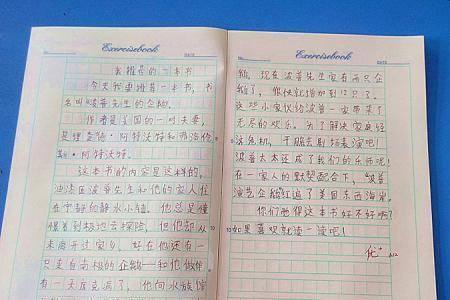 Exercisebook
我推荐的一本书
今天我要推荐一本书，书
名叫《波普先生的企鹅》
作者是美国的一对夫妻，
是理查德·阿特沃特和弗洛伦
斯·阿特沃特。
这本书的内容是这样的，
油漆匠波普先生和他的家人住
在宁静的静水小镇。他总是憧
憬着到极地去探险，但他却从
未离开过家乡。好在他还有一
只来自南极的企鹅——和他做伴
有一天库克病了，他向水族馆
Exercisebook
现在波普先生家有两只企
鹅了，很快就增加到12只了。
这些小家伙给波普一家带来了
无尽的欢乐。为了解决家庭经
济危机，干脆去剧场表演吧！
波普太太还成了我们的乐师呢！
在一家人的默契配合下，“波普
演艺企鹅红遍了美国东西海岸。
你们觉得这本书好不好啊？
如果喜欢就读一读吧！
优+